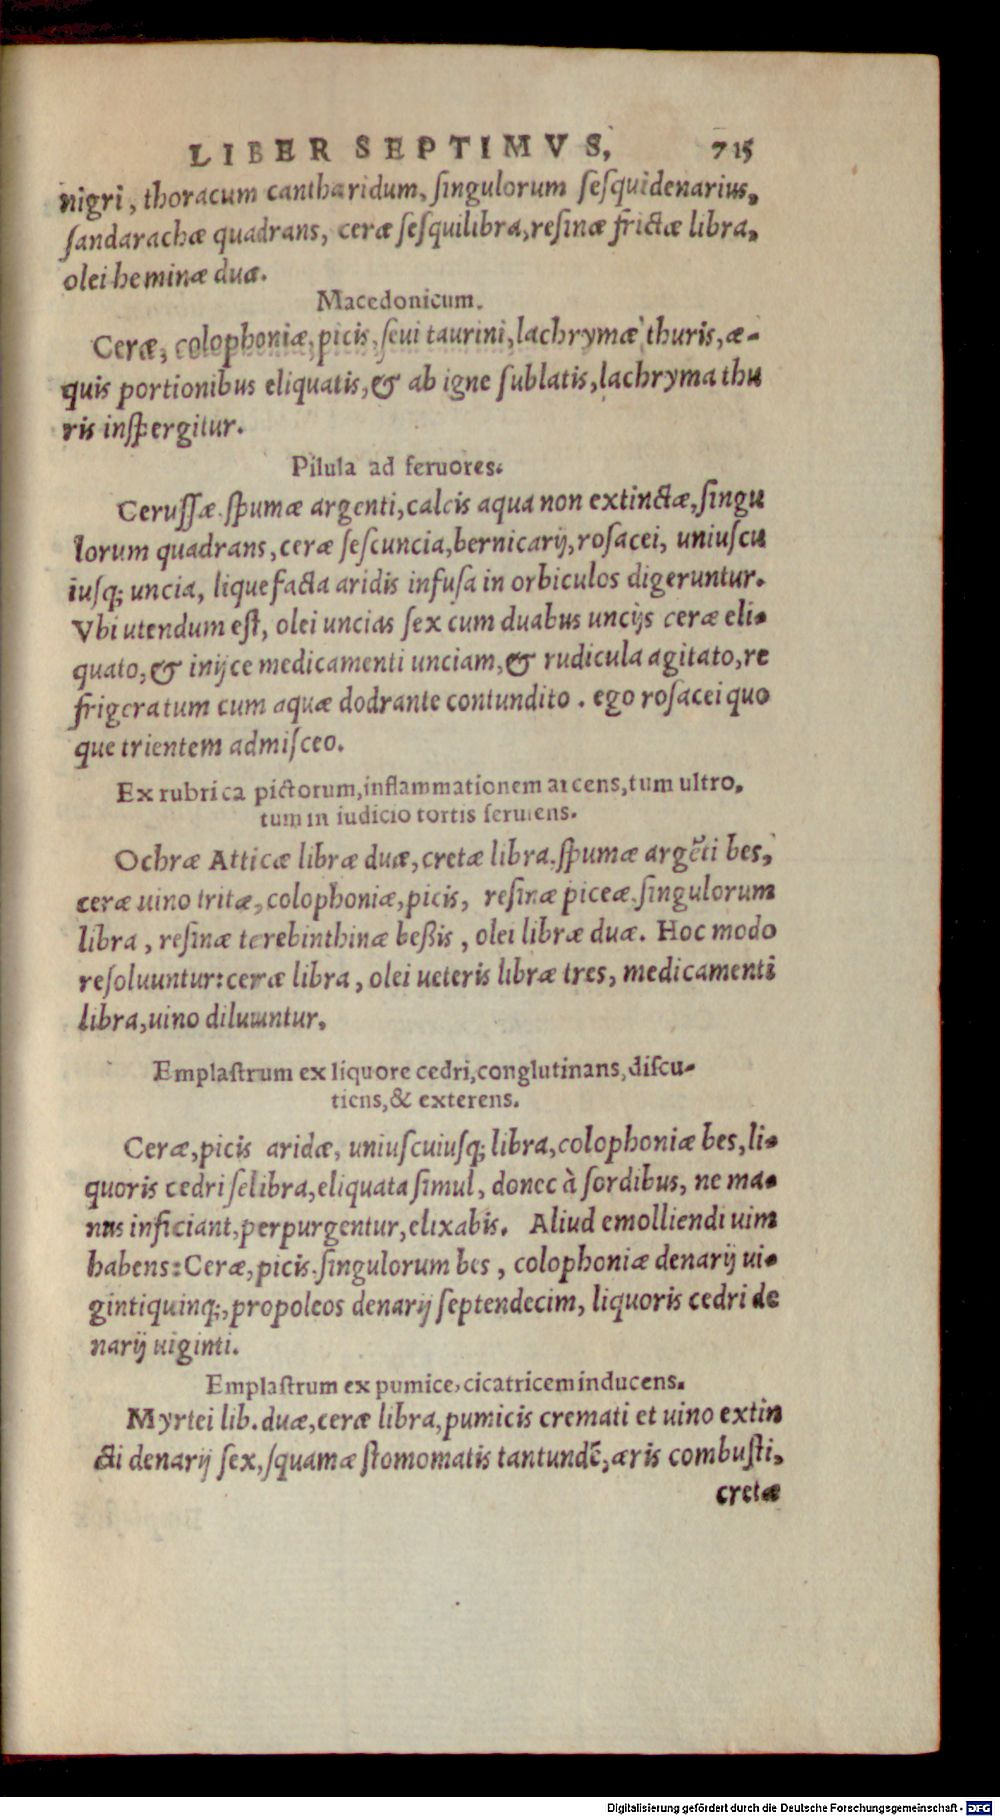 LIBER SEPTIMVS, 715
nigri, thoracum cantharidum, ſingulorum ſeſquidenarius,
ſandarachæ quadrans, ceræ ſeſquilibra, reſinæ frictæ libra,
olei heminæ duæ.
Macedonicum.
Ceræ, colophoniæ, picis, ſeui taurini, lachrymæ thuris, æ-
quis portionibus eliquatis, & ab igne ſublatis, lachryma thu
ris inſpergitur.
Pilula ad feruores.
Ceruſſæ, ſpumæ argenti, calcis aqua non extinctæ, ſingu
lorum quadrans, ceræ ſeſcuncia, bernicarij, roſacei, uniuſcu
iuſq; uncia, liquefacta aridis infuſa in orbiculos digeruntur.
Vbi utendum eſt, olei uncias ſex cum duabus uncijs ceræ eli-
quato, & inijce medicamenti unciam, & rudicula agitato, re
frigeratum cum aquæ dodrante contundito. ego roſacei quo
que trientem admiſceo.
Ex rubrica pictorum, inflammationem arcens, tum ultro,
tum in iudicio tortis ſeruiens.
Ochræ Atticæ libræ duæ, cretæ libra, ſpumæ argẽti bes,
ceræ uino tritæ, colophoniæ, picis, reſinæ piceæ, ſingulorum
libra, reſinæ terebinthinæ beßis, olei libræ duæ. Hoc modo
reſoluuntur: ceræ libra, olei ueteris libræ tres, medicamenti
libra, uino diluuntur.
Emplaſtrum ex liquore cedri, conglutinans, diſcu-
tiens, & exterens.
Ceræ, picis aridæ, uniuſcuiuſq; libra, colophoniæ bes, li-
quoris cedri ſelibra, eliquata ſimul, donec à ſordibus, ne ma-
nus inficiant, perpurgentur, elixabis. Aliud emolliendi uim
habens: Ceræ, picis, ſingulorum bes, colophoniæ denarij ui-
gintiquinq;, propoleos denarij ſeptendecim, liquoris cedri de
narij uiginti.
Emplaſtrum ex pumice, cicatricem inducens.
Myrtei lib. duæ, ceræ libra, pumicis cremati et uino extin
cti denarij ſex, ſquamæ ſtomomatis tantundẽ, æris combuſti,
cretæ
Digitalisierung gefördert durch die Deutsche Forschungsgemeinschaft - DFG